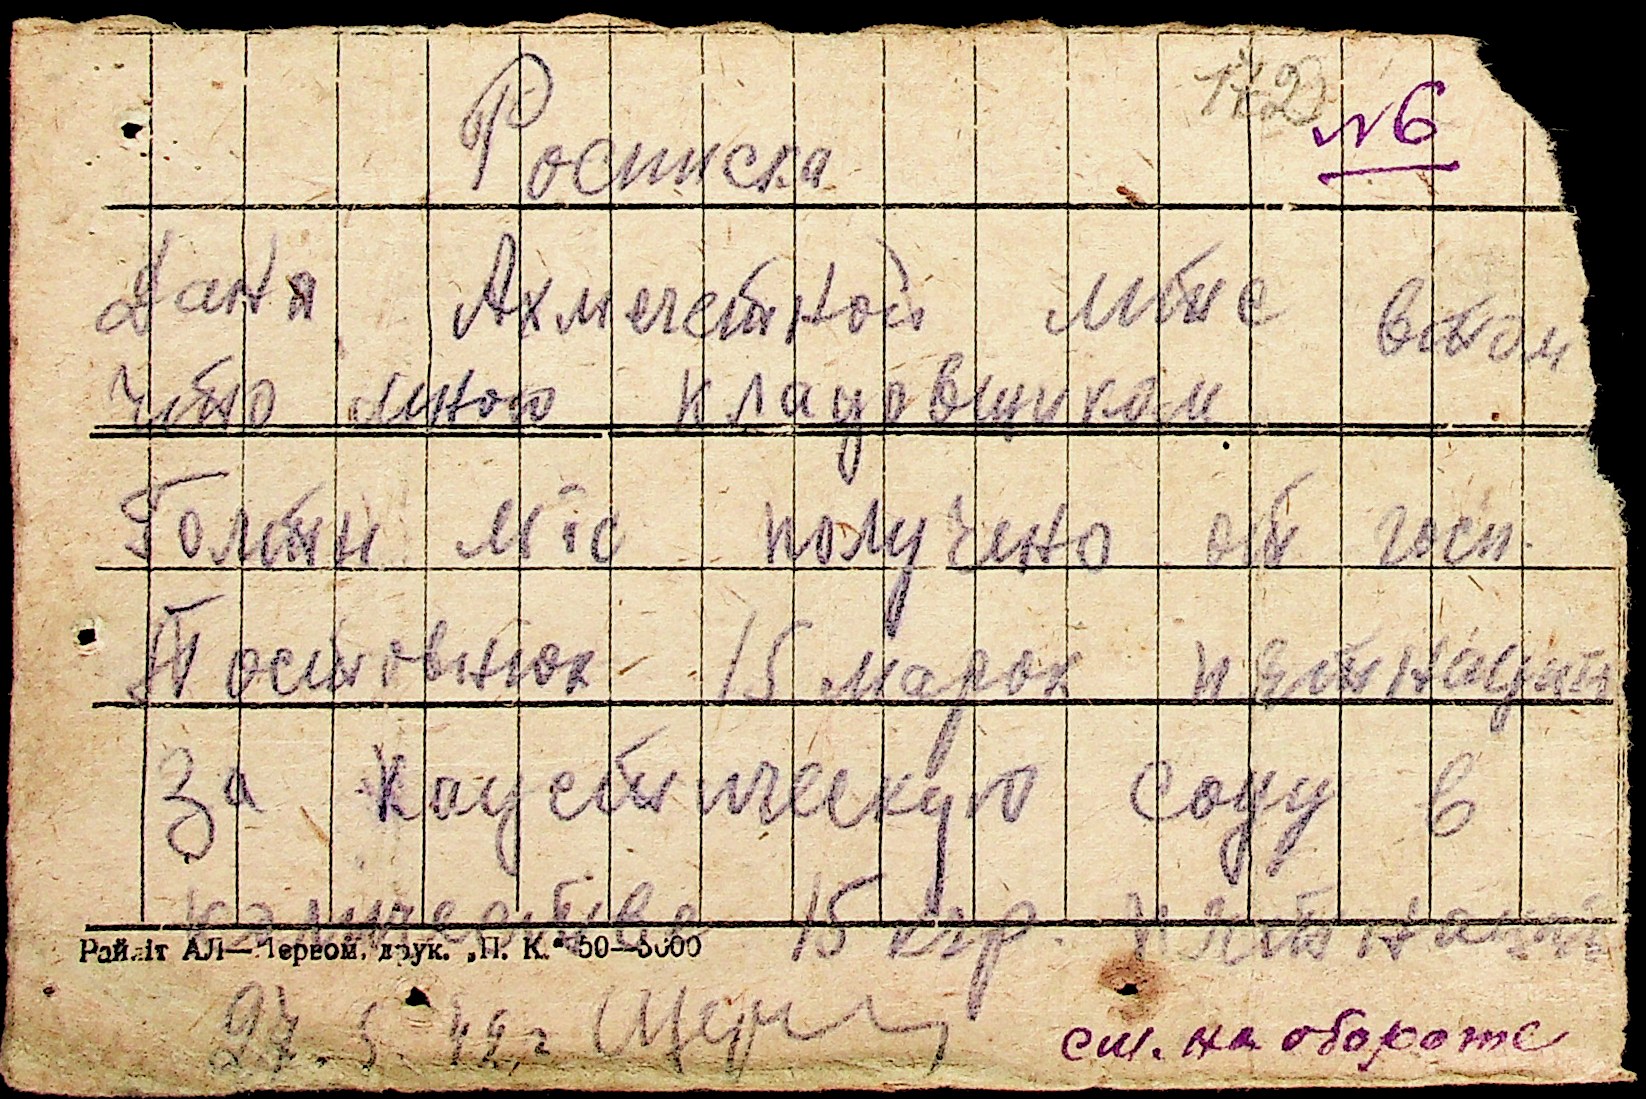 172
№6
Росписка
Дана Ахмечетной мтс втом
что мною кладовщиком
Голтян мтс получено от госп.
Постовнюк 15 марок пятнадцать
За каустическую соду в
количестве 15 кгр. пятнадцать
Райліт АЛ—Первом. друк. „П. К.“ 50—5000
27. 5. 42 г
см. на обороте